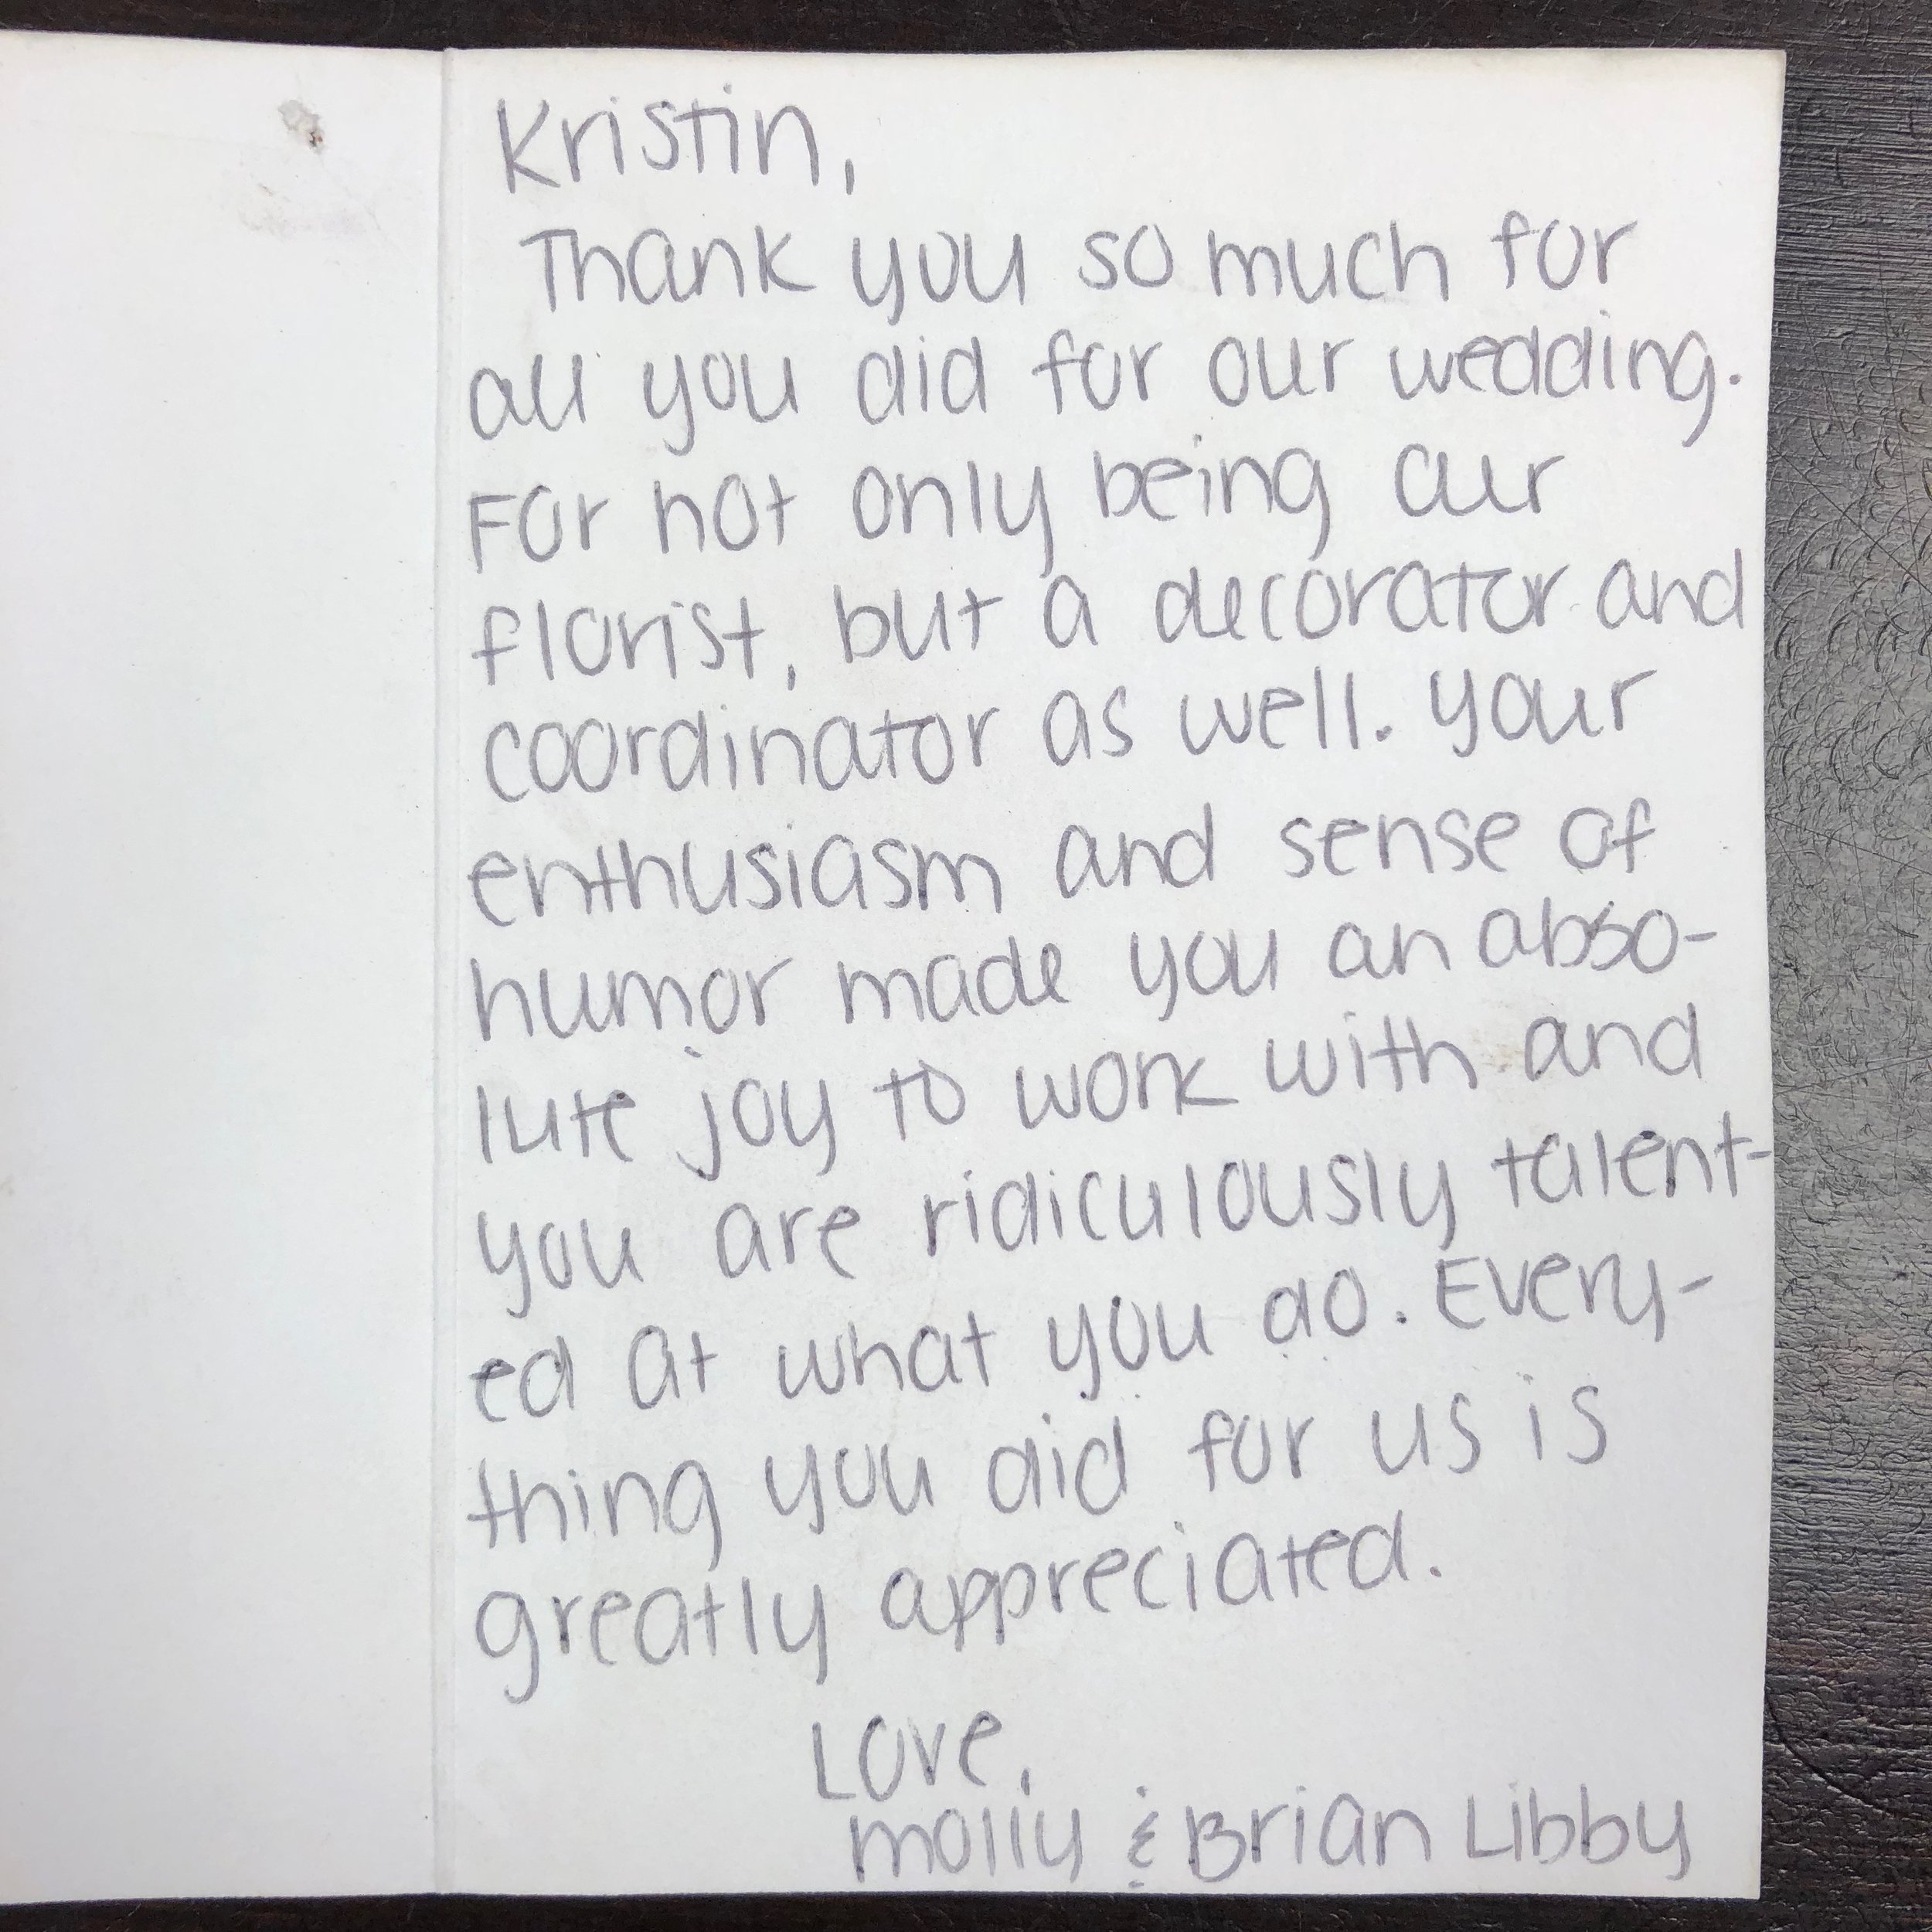 Kristin,
Thank you so much for
all you did for our wedding.
For not only being our
florist, but a decorator and
coordinator as well. Your
enthusiasm and sense of
humor made you an abso-
lute joy to work with and
you are ridiculously talent-
ed at what you do. Every-
thing you did for us is
greatly appreciated.
Love,
Molly & Brian Libby